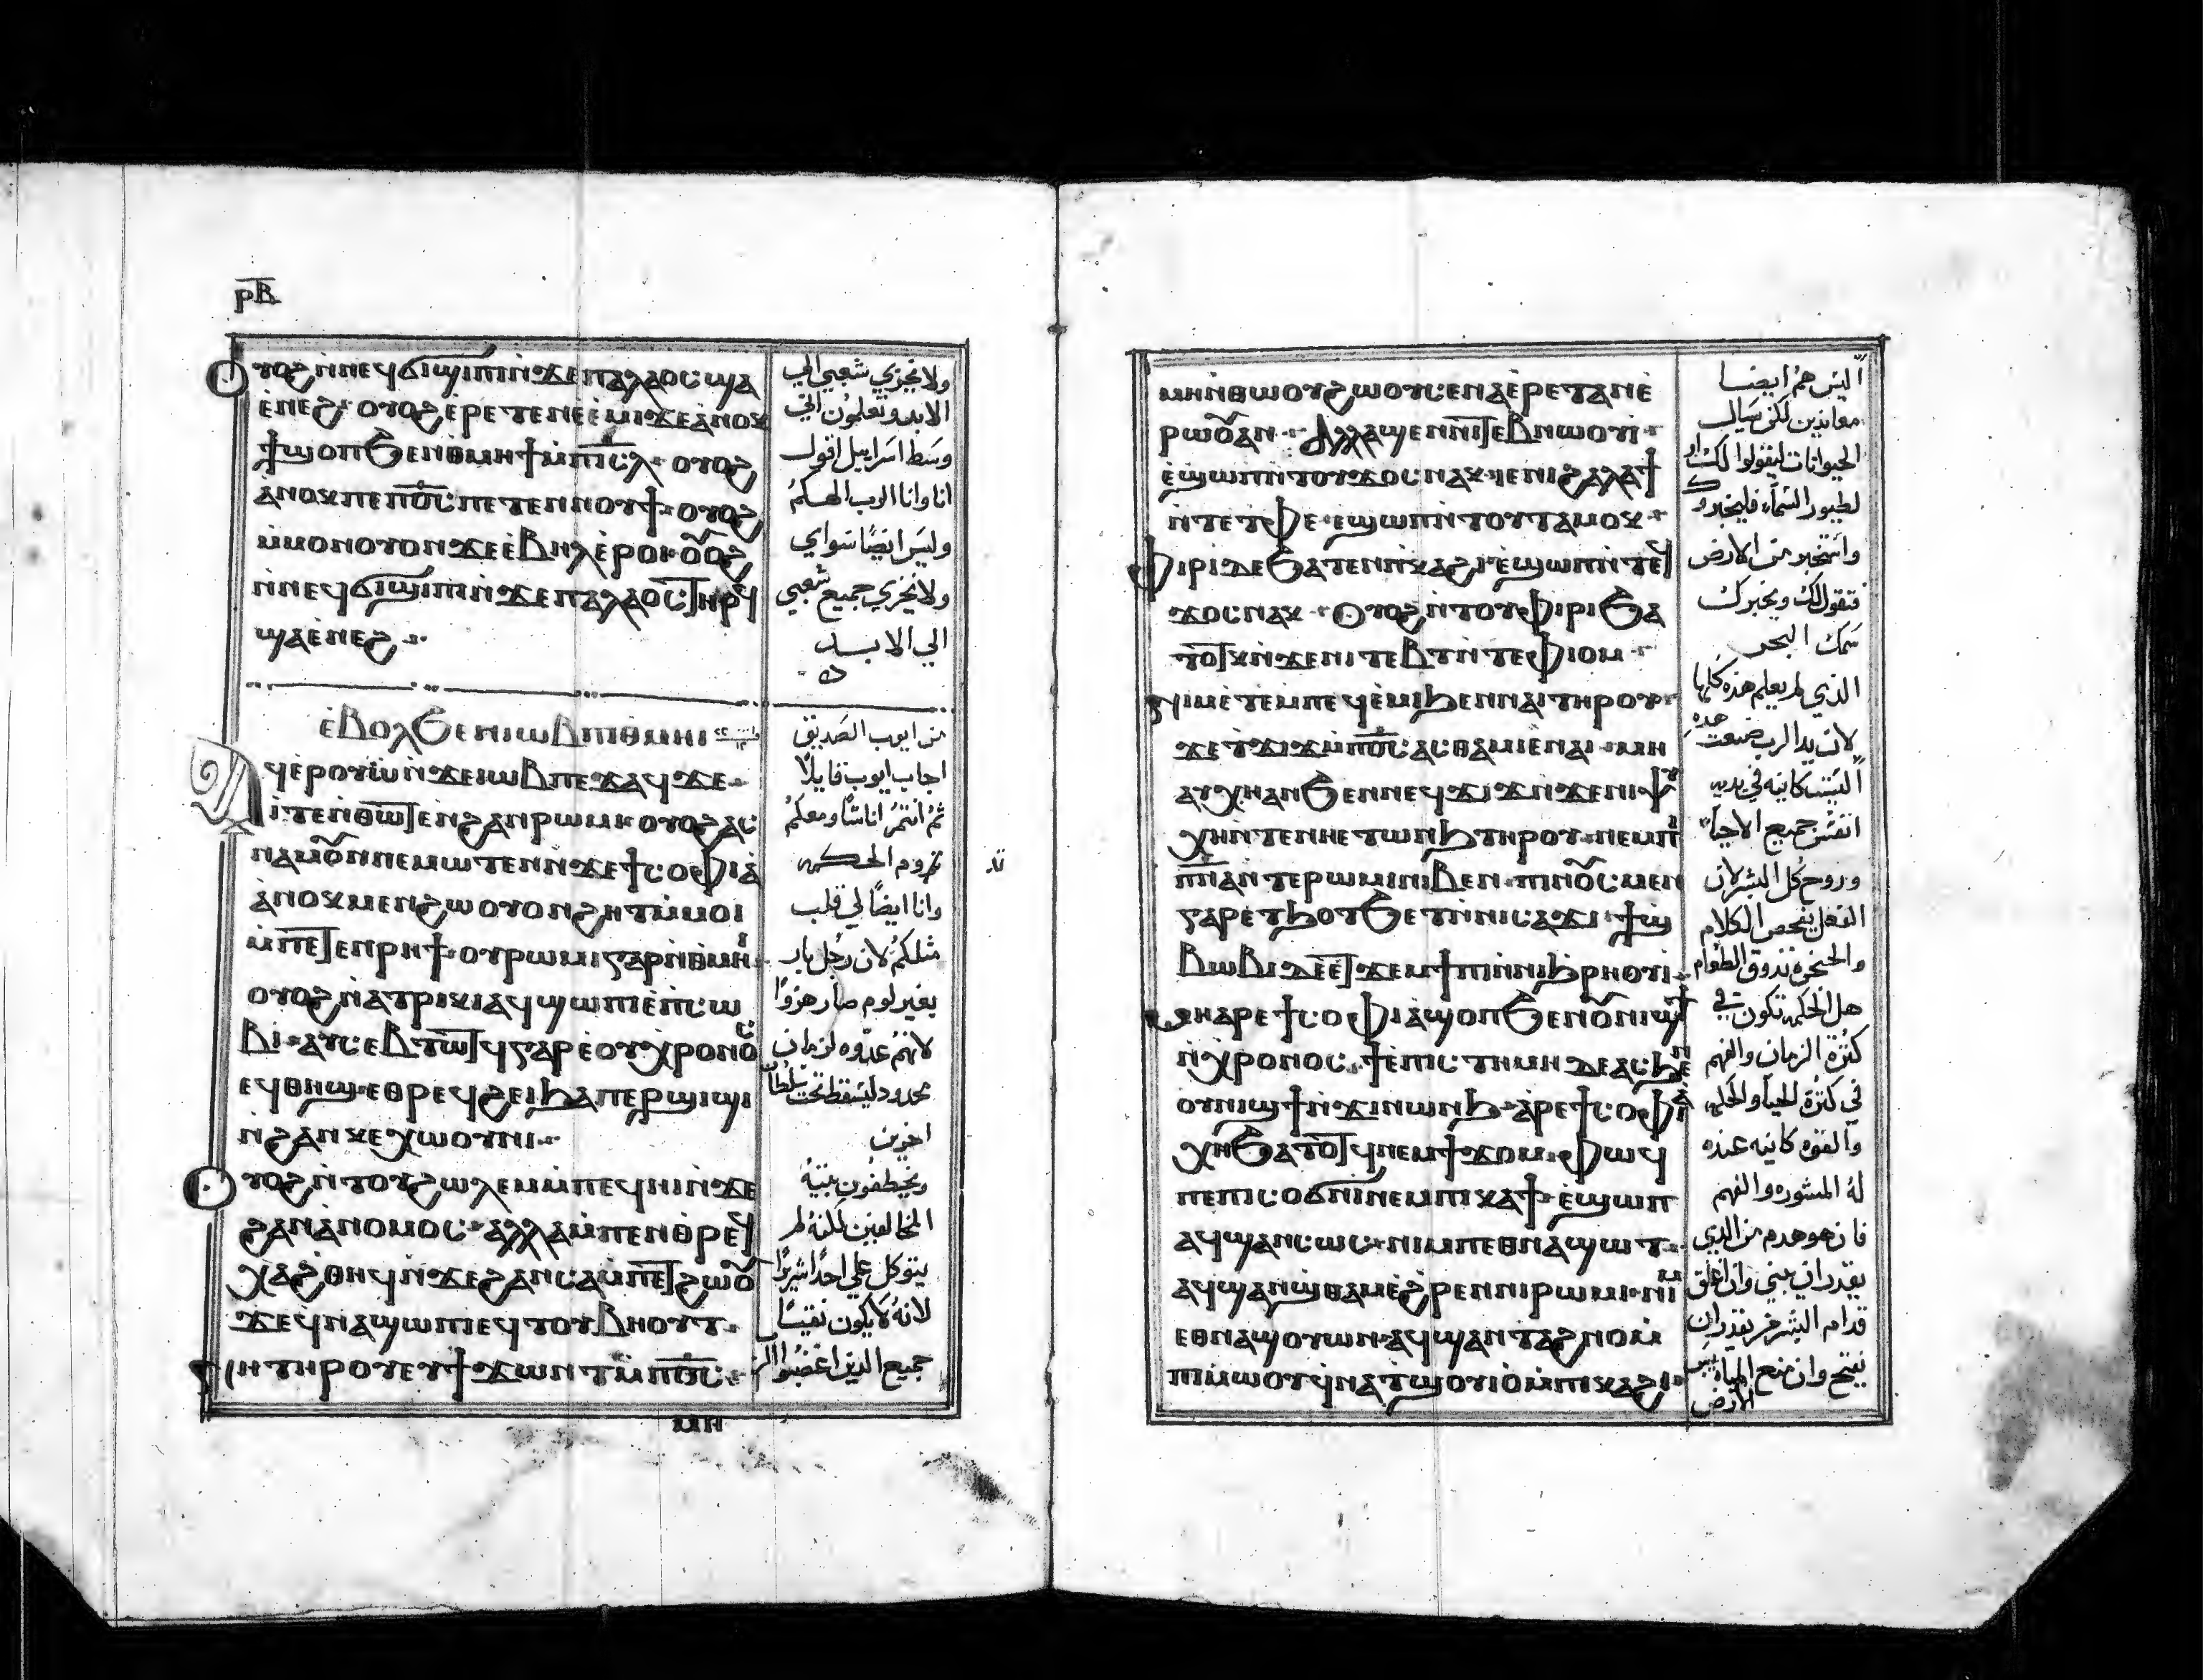 ⲣⲃ
ⲟⲩⲟϩ ⲛ̀ⲛⲉϥϭⲓϣⲓⲡⲓ ⲛ̀ϫⲉ ⲡⲁⲗⲁⲟⲥ ϣⲁ
ⲉ̀ⲛⲉϩ ⲟⲩⲟϩ ⲉ̀ⲣⲉⲧⲉⲛⲉⲉ̀ⲙⲓ ϫⲉ ⲁ̀ⲛⲟⲕ
ϯϣⲟⲡ ϧⲉⲛ ⲑⲙⲏϯ ⲙ̀ⲡⲓⲥ̅ⲗ̅ ⲟⲩⲟϩ
ⲁ̀ⲛⲟⲕ ⲡⲉ ⲡⲟ̅ⲥ̅ ⲡⲉⲧⲉⲛⲛⲟⲩϯ ⲟⲩⲟϩ
ⲙ̀ⲙⲟⲛ ⲟⲩⲟⲛ ϫⲉ ⲉ̀ⲃⲏⲗ ⲉ̀ⲣⲟⲓ ⲟⲩⲟϩ
ⲛ̀ⲛⲉϥϭⲓϣⲓⲡⲓ ⲛ̀ϫⲉ ⲡⲁⲗⲁⲟⲥ ⲧⲏⲣϥ
ϣⲁ ⲉ̀ⲛⲉϩ
ⲉ̀ⲃⲟⲗ ϧⲉⲛ ⲓⲱⲃ ⲡⲓⲑⲙⲏⲓ
ⲁϥⲉⲣⲟⲩⲱ̀ ⲛ̀ϫⲉ ⲓⲱⲃ ⲡⲉϫⲁϥ ϫⲉ
ⲓⲧⲉ ⲛ̀ⲑⲱⲧⲉⲛ ϩⲁⲛⲣⲱⲙⲓ ⲟⲩⲟϩ ⲁⲥ
ⲛⲁⲙⲟⲩⲛ ⲛⲉⲙⲱⲧⲉⲛ ⲛ̀ϫⲉ ϯⲥⲟⲫⲓⲁ̀
ⲁ̀ⲛⲟⲕ ⲙⲉⲛ ϩⲱ ⲟⲩⲟⲛ ϩⲏⲧ ⲙ̀ⲙⲟⲓ
ⲙ̀ⲡⲉⲧⲉⲛⲣⲏϯ ⲟⲩⲣⲱⲙⲓ ⲅⲁⲣ ⲛ̀ⲑⲙⲏⲓ
ⲟⲩⲟϩ ⲛ̀ⲁⲧⲣⲓⲕⲓ ⲁϥϣⲱⲡⲓ ⲉ̀ⲡ̀ⲥⲱ
ⲃⲓ ⲁⲩⲥⲉⲃⲧⲱⲧϥ ⲅⲁⲣ ⲉ̀ⲟⲩⲭⲣⲟⲛⲟⲥ
ⲉϥⲑⲏϣ ⲉⲑⲣⲉϥϩⲉⲓ ϧⲁ ⲡⲉⲣϣⲓϣⲓ
ⲛ̀ϩⲁⲛⲕⲉⲭⲱⲟⲩⲛⲓ
ⲟⲩⲟϩ ⲛ̀ⲧⲟⲩϩⲱⲗⲉⲙ ⲙ̀ⲡⲉϥⲏⲓ ⲛ̀ϫⲉ
ϩⲁⲛⲁ̀ⲛⲟⲙⲟⲥ ⲁⲗⲗⲁ ⲙ̀ⲡⲉⲛⲑⲣⲉϥ
ⲭⲁϩⲑⲏϥ ⲛ̀ϫⲉ ϩⲁⲛⲥⲁⲙⲡⲉⲧϩⲱⲟⲩ
ϫⲉ ϥⲛⲁϣⲱⲡⲓ ⲉϥⲧⲟⲩⲃⲏⲟⲩⲧ
ⲛⲏ ⲧⲏⲣⲟⲩ ⲉⲧϯϫⲱⲛⲧ ⲙ̀ⲡⲟ̅ⲥ̅
ⲙⲏ
ولا يخزي شعبي الي
الابد وتعلمون اني
وسط اسراييل اقول
انا وانا الرب الهكم
وليس ايضا سواي
ولا يخزي جميع شعبي
الي الابد
من ايوب الصديق
اجاب ايوب قايلا
ثم انتم اناسا ومعكم
تدوم الحكمه
وانا ايضا لي قلب
مثلكم لان رجل بار
بغير لوم صار هزوا
لانهم عدوه لزمان
محدود ليسقط تحت سلطان
اخرين
ويخطفون بيته
المخالفين لكنه لم
يتوكل علي احدا شريرا
لانه لا يكون نقيسا
جميع الذين اغضبوا الرب
ⲙⲏ ⲛ̀ⲑⲱⲟⲩ ϩⲱⲟⲩ ⲥⲉⲛⲁⲉ̀ⲣⲉⲧⲁⲛⲉ̀
ⲣⲱⲟⲩ ⲁⲛ ⲁⲗⲗⲁ ϣⲉⲛ ⲛⲓⲧⲉⲃⲛⲱⲟⲩⲓ
ⲉ̀ϣⲱⲡ ⲛ̀ⲧⲟⲩϫⲟⲥ ⲛⲁⲕ ⲓⲉ ⲛⲓϩⲁⲗⲁϯ
ⲛ̀ⲧⲉ ⲧⲫⲉ ⲉϣⲱⲡ ⲛ̀ⲧⲟⲩⲧⲁⲙⲟⲕ
ϣⲓⲛⲓ ⲇⲉ ϧⲁⲧⲉⲛ ⲡⲕⲁϩⲓ ⲉ̀ϣⲱⲡ ⲛ̀ⲧⲉϥ
ϫⲟⲥ ⲛⲁⲕ ⲟⲩⲟϩ ⲛ̀ⲧⲟⲩⲫⲓⲣⲓ ϧⲁ
ⲧⲟⲧⲕ ⲛ̀ϫⲉ ⲛⲓⲧⲉⲃⲧ ⲛ̀ⲧⲉ ⲫⲓⲟⲙ
ⲛⲓⲙ ⲉ̀ⲧⲉⲙⲡⲉϥⲉ̀ⲙⲓ ϧⲉⲛ ⲛⲁⲓ ⲧⲏⲣⲟⲩ
ϫⲉ ⲧϫⲓϫ ⲙ̀ⲡⲟ̅ⲥ̅ ⲁⲥⲑⲁⲙⲓⲉ̀ ⲛⲁⲓ ⲙⲏ
ⲁⲩⲭⲏ ⲁⲛ ϧⲉⲛ ⲛⲉϥϫⲓϫ ⲛ̀ϫⲉ ⲛⲓⲯⲩ
ⲭⲏ ⲛ̀ⲧⲉ ⲛⲏ ⲉⲧⲱⲛϧ ⲧⲏⲣⲟⲩ ⲛⲉⲙ
ⲡⲓⲡ̅ⲛ̅ⲁ̅ ⲛ̀ⲧⲉ ⲣⲱⲙⲓ ⲛⲓⲃⲉⲛ ⲡⲓⲛⲟⲩⲥ ⲙⲉⲛ
ⲅⲁⲣ ⲉⲧϧⲟⲧϧⲉⲧ ⲛ̀ⲛⲓⲥⲁϫⲓ ϯϣ
ⲃⲱⲃⲓ ⲇⲉ ⲉⲧϫⲉⲙϯⲡⲓ ⲛ̀ⲛⲓϧⲣⲏⲟⲩⲓ
ⲙⲏ ⲁⲣⲉ ϯⲥⲟⲫⲓⲁ̀ ϣⲟⲡ ϧⲉⲛ ⲟⲩⲛⲓϣϯ
ⲛ̀ⲭⲣⲟⲛⲟⲥ ϯⲉ̀ⲡⲓⲥⲧⲏⲙⲏ ⲇⲉ ⲁⲥϧⲉⲛ
ⲟⲩⲛⲓϣϯ ⲛ̀ϫⲓⲛⲱⲛϧ ⲁ̀ⲣⲉ ϯⲥⲟⲫⲓⲁ̀
ⲭⲏ ϧⲁⲧⲟⲧϥ ⲛⲉⲙ ϯϫⲟⲙ ⲫⲱϥ
ⲡⲉ ⲡⲓⲥⲟϭⲛⲓ ⲛⲉⲙ ⲡⲓⲕⲁϯ ⲉ̀ϣⲱⲡ
ⲁϥϣⲁⲛⲥⲱⲥ ⲛⲓⲙ ⲡⲉⲑⲛⲁϣⲱⲧ
ⲁϥϣⲁⲛϣⲑⲁⲙ ⲉ̀ϩⲣⲉⲛ ⲛⲓⲣⲱⲙⲓ ⲛⲓⲙ
ⲉⲑⲛⲁϣⲟⲩⲱⲛ ⲁϥϣⲁⲛⲧⲁϩⲛⲟ ⲙ̀
ⲡⲓⲙⲱⲟⲩ ϥⲛⲁⲧϣⲟⲩⲓⲟ̀ ⲙ̀ⲡⲓⲕⲁϩⲓ
اليس هم ايضا
معاندين لكن سيال
الحيوانات ليقولوا لك او
لطيور السماء فليخبروك
واستخبر من الارض
فتقول لك ويخبرك
سمك البحر
الذي لم يعلم هذه كلها
لان يد الرب صنعت هذه
اليست كاينه في يديه
انفس جميع الاحيا
وروح كل البشر لان
العقل يفحص الكلام
والحنجره تذوق الطعام
هل الحكمه تكون في
كثرة الزمان والفهم
في كثرة الحيا والحكمه
والقوه كاينه عنده
له المشوره والفهم
فان هو هدم من الذي
يقدر ان يبني وان اغلق
قدام البشر من يقدر ان
يفتح وان منع المياه ييبس
الارض